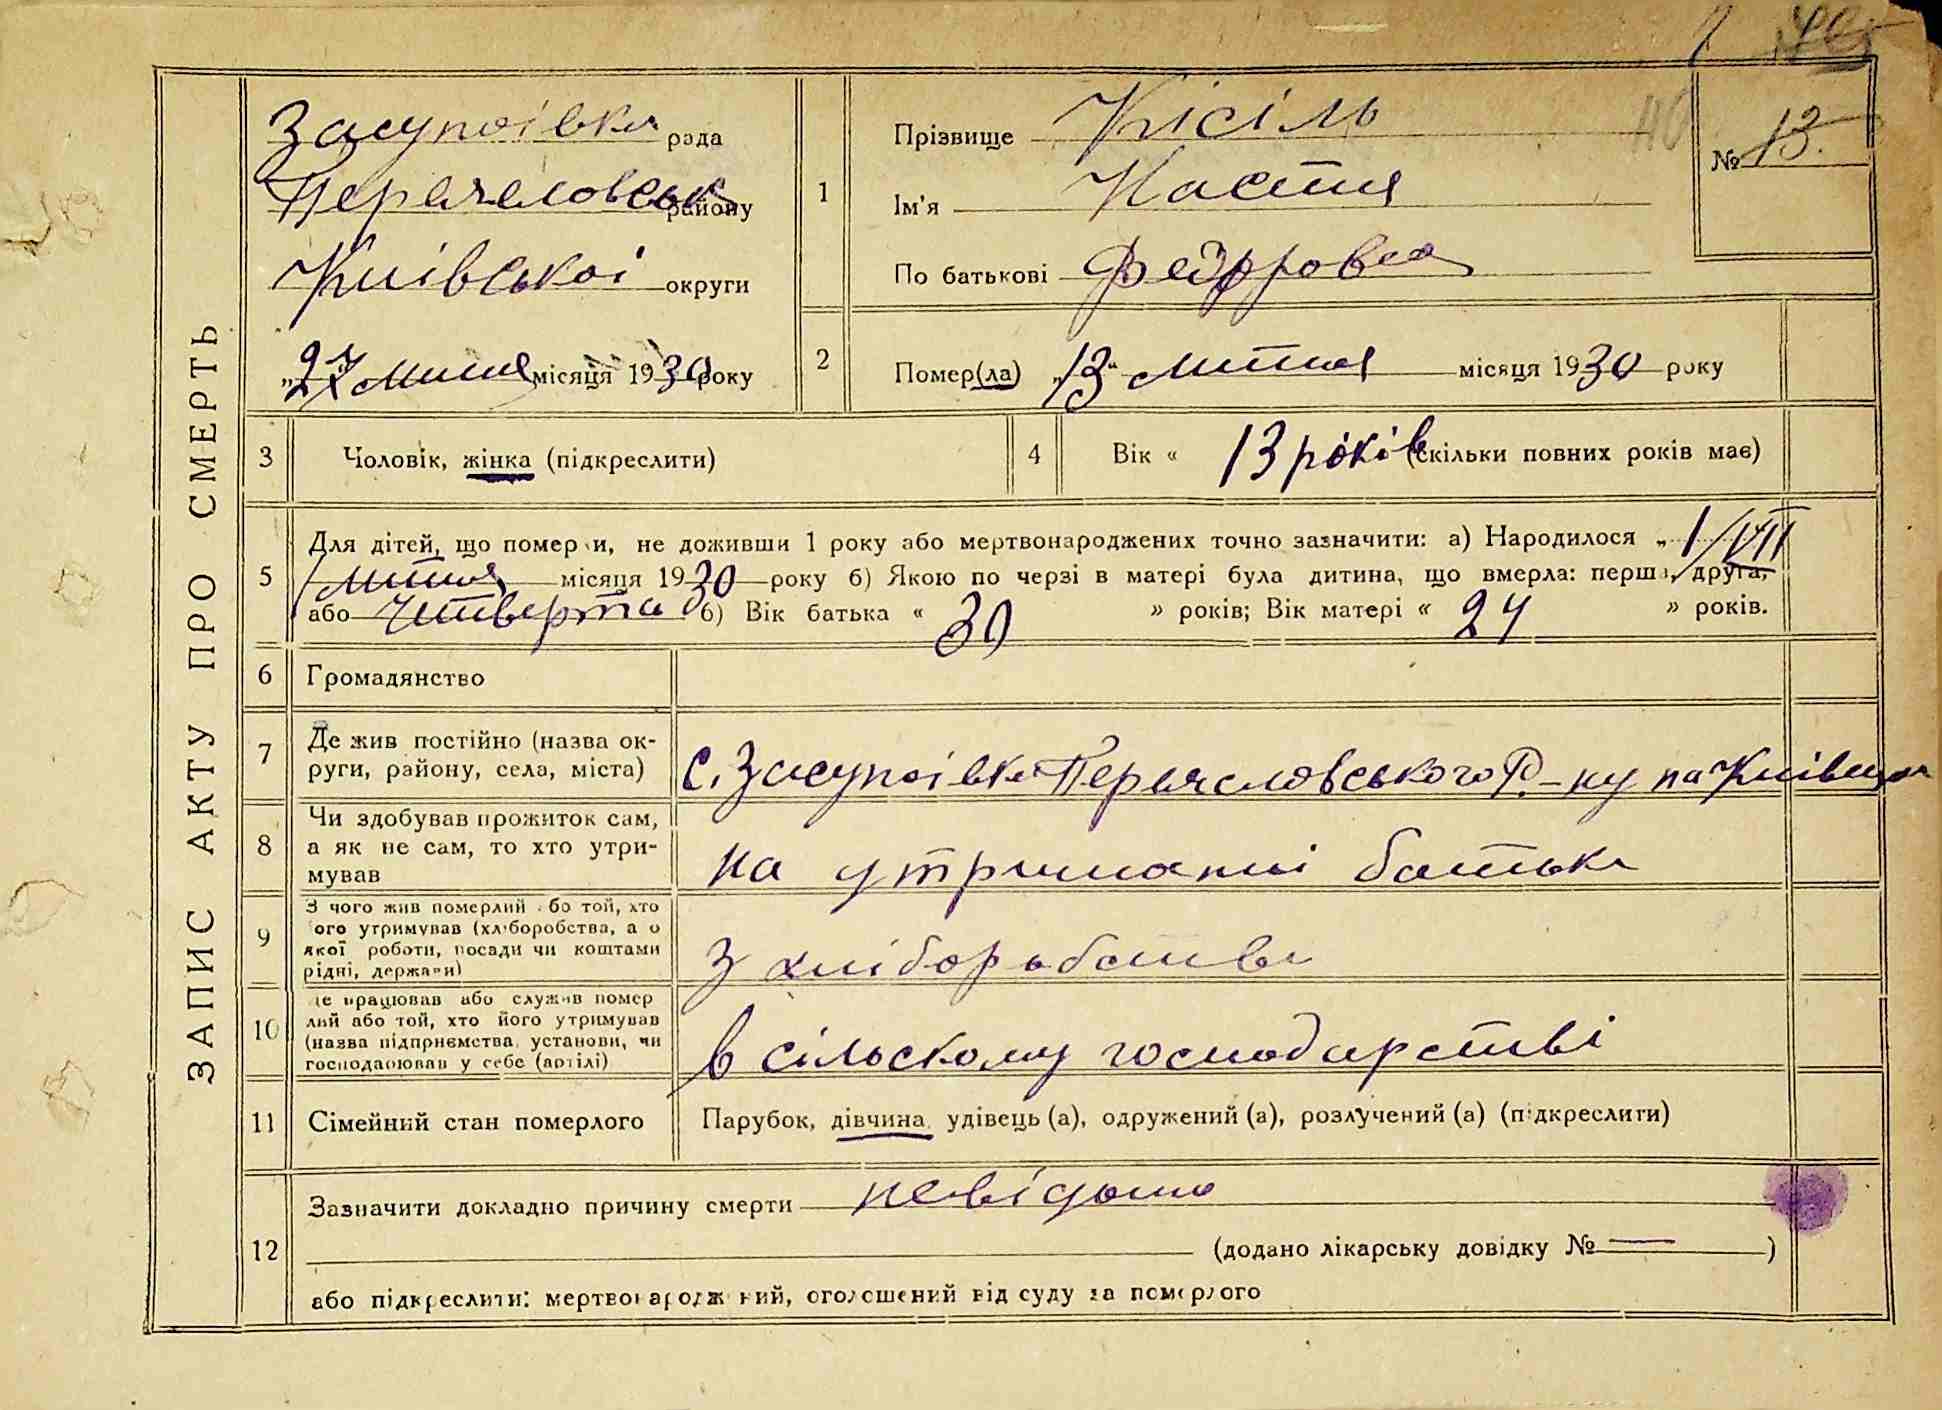 ЗАПИС АКТУ ПРО СМЕРТЬ
Засупоівка рада
Переяславськ району
Київської округи
„27" липня місяця 1930 року
1
Прізвище Кісіль
Ім'я Настя
По батькові Федоровна
№ 13.
2
Помер(ла) „13" липня місяця 1930 року
3 Чоловік, жінка (підкреслити)
4 Вік « 13 років (скільки повних років має)
5 Для дітей, що померли, не доживши 1 року або мертвонароджених точно зазначити: а) Народилося „ 1/VII
липня місяця 1930 року б) Якою по черзі в матері була дитина, що вмерла: перша, друга,
або четверта б) Вік батька « 30 » років; Вік матері « 24 » років.
6 Громадянство
7 Де жив постійно (назва ок-
руги, району, села, міста)
с. Засупоівка Переяславського Р-ну на Київщин
8 Чи здобував прожиток сам,
а як не сам, то хто утри-
мував
на утриманні батька
9 З чого жив померлий або той, хто
ого утримував (хліборобства, а о
якої роботи, посади чи коштами
рідні, держави)
З хліборобства
10 це працював або служив помер
лий або той, хто його утримував
(назва підприємства, установи, чи
господарював у себе (артілі)
в сільскому господарстві
11 Сімейний стан померлого Парубок, дівчина, удівець (а), одружений (а), розлучений (а) (підкреслити)
12 Зазначити докладно причину смерти невідома
(додано лікарську довідку № — )
або підкреслити: мертвонароджений, оголошений від суду за померлого